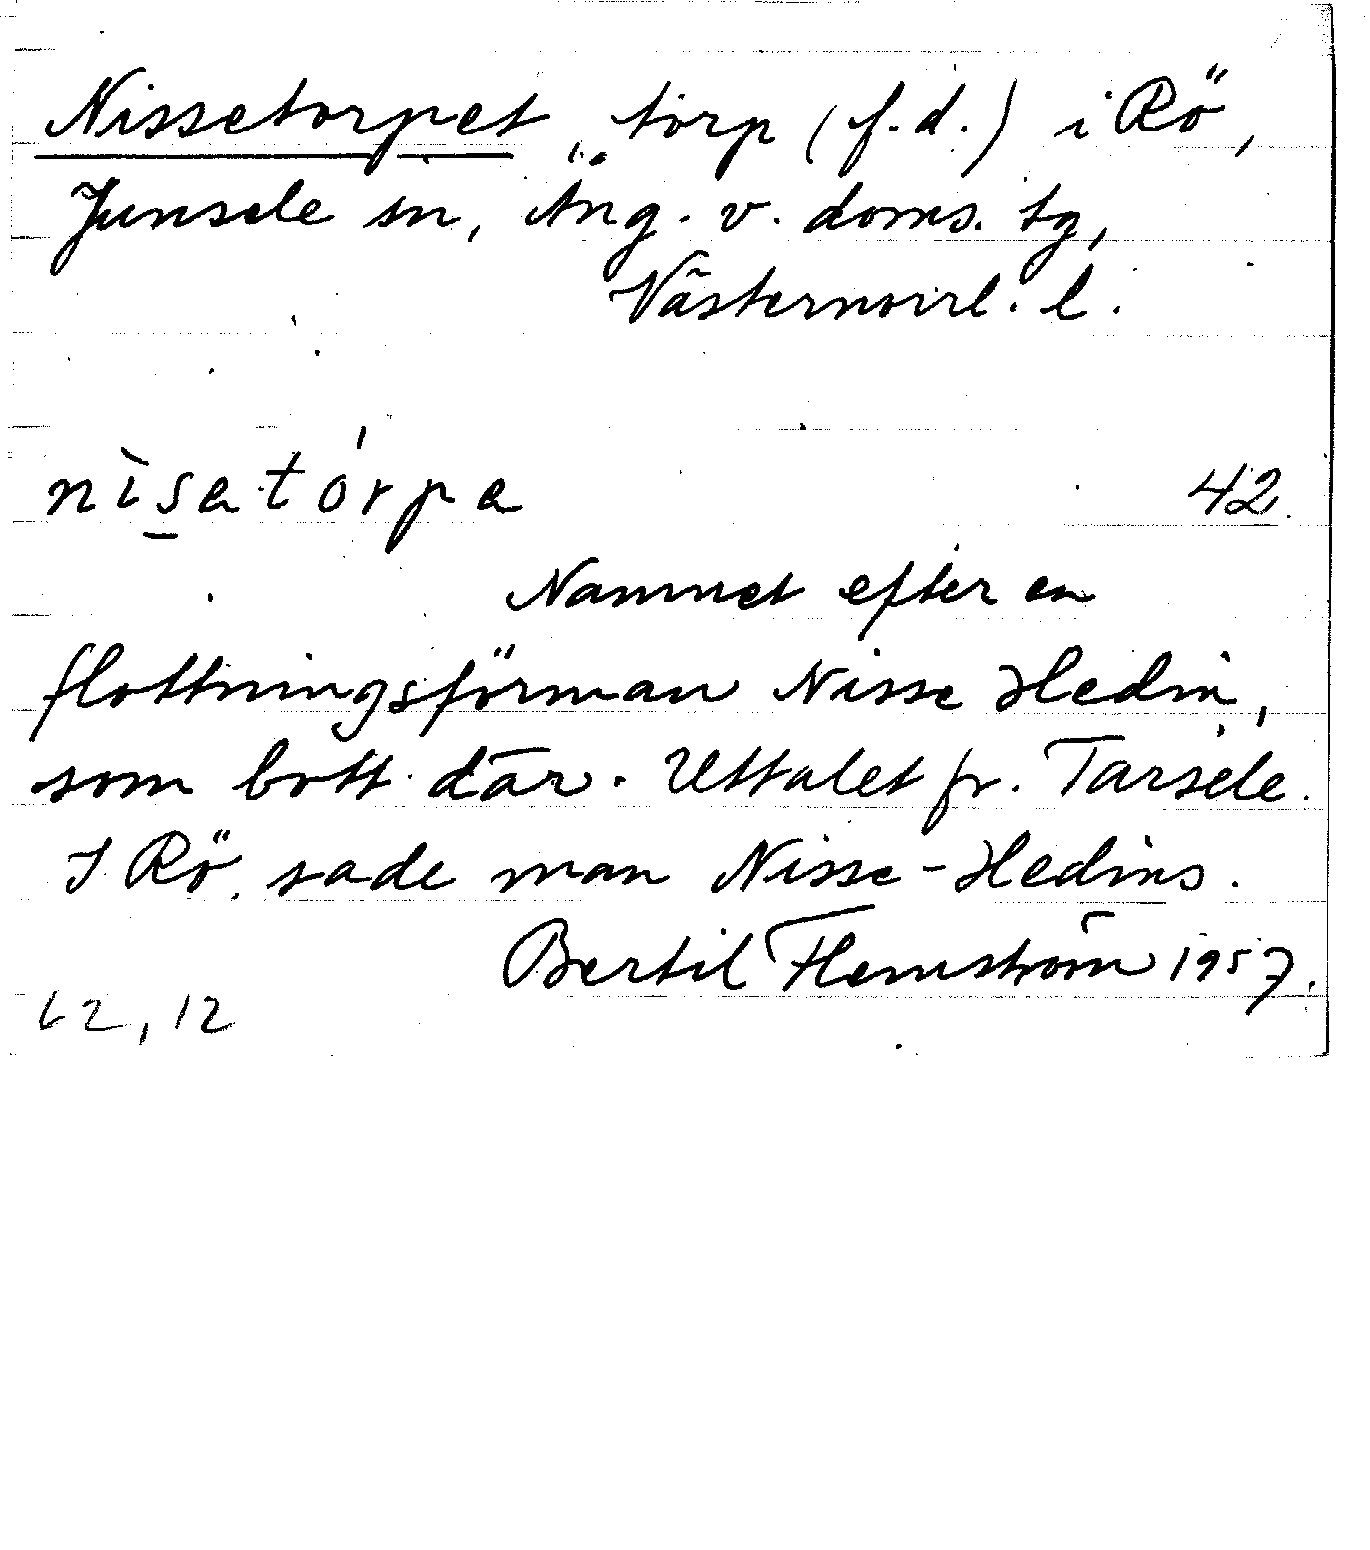 Nissetorpet, torp (f.d.) i Rö,
Junsele sn, Ång. v. doms. tg,
Västernorrl. l.
nìsatórpa 42.
Namnet efter en
flottningsförman Nisse Hedin,
som bott där. Uttalet fr. Tarsele.
I Rö sade man Nisse-Hedins.
Bertil Flemström 1957.
62, 12